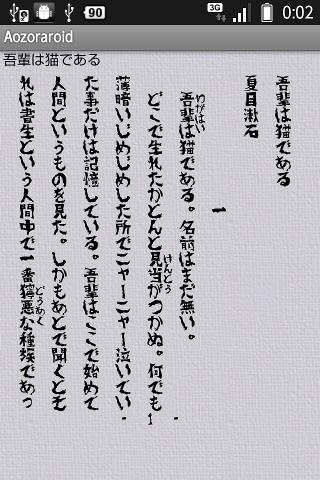 90
3G
0:02
Aozoraroid
吾輩は猫である
吾輩は猫である
夏目漱石
一
吾輩は猫である。名前はまだ無い。
わがはい
どこで生れたかとんと見当がつかぬ。何でも
けんとう
薄暗いじめじめした所でニャーニャー泣いてい
た事だけは記憶している。吾輩はここで始めて
人間というものを見た。しかもあとで聞くとそ
れは書生という人間中で一番獰悪な種族であっ
どうあく
- 1 -